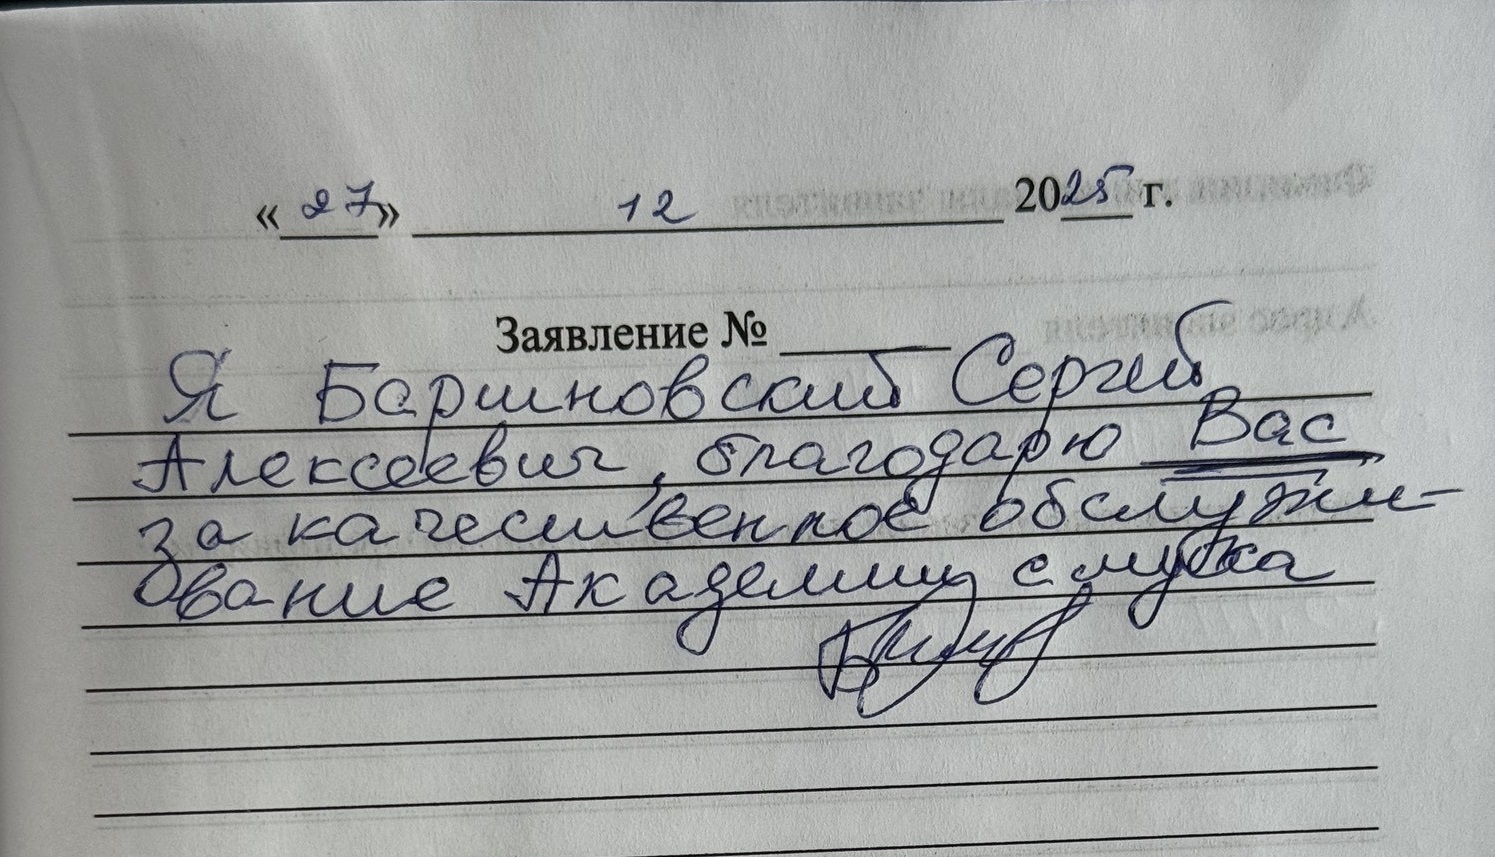 «27» 12 2025 г.
Заявление № ____
Я Баршновский Сергей
Алексеевич, благодарю Вас
за качественное обслужи-
вание Академии слуха